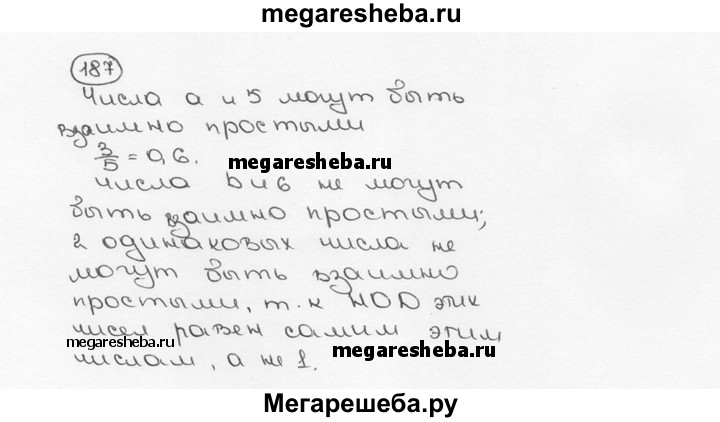 megaresheba.ru
187
Числа а и 5 могут быть
взаимно простыми
3/5 = 0,6.
megaresheba.ru
числа b и 6 не могут
быть взаимно простыми;
2 одинаковых числа не
могут быть взаимно
простыми, т.к НОД этих
чисел равен самим этим
megaresheba.ru
числам, а не 1.
megaresheba.ru
Мегарешеба.ру